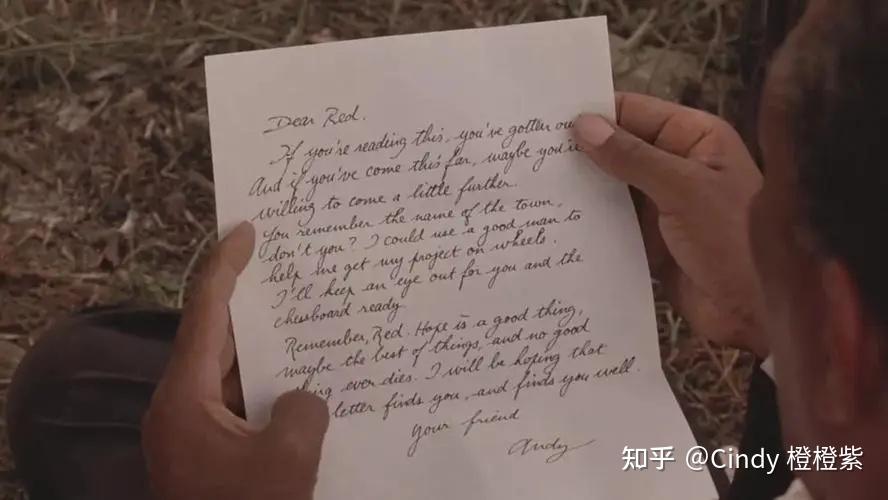 Dear Red.
If you're reading this, you've gotten ou
And if you've come this far, maybe you're
willing to come a little further.
You remember the name of the town,
don't you? I could use a good man to
help me get my project on wheels.
I'll keep an eye out for you and the
chessboard ready.
Remember, Red. Hope is a good thing,
maybe the best of things, and no good
thing ever dies. I will be hoping that
letter finds you, and finds you well.
Your friend
Andy
知乎 @Cindy 橙橙紫